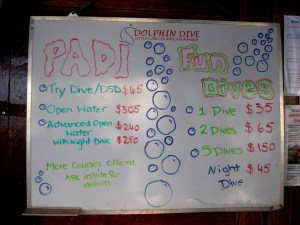 DOLPHIN DIVE
LITTLE CORN ISLAND, NICARAGUA
PADI
Try Dive/DSD $65
Open Water $305
Advanced Open $240
Water
with Night Dive $250
More Courses Offered
Ask inside for
details
Fun
Dives
1 Dive $35
2 Dives $65
5 Dives $150
Night $45
Dive